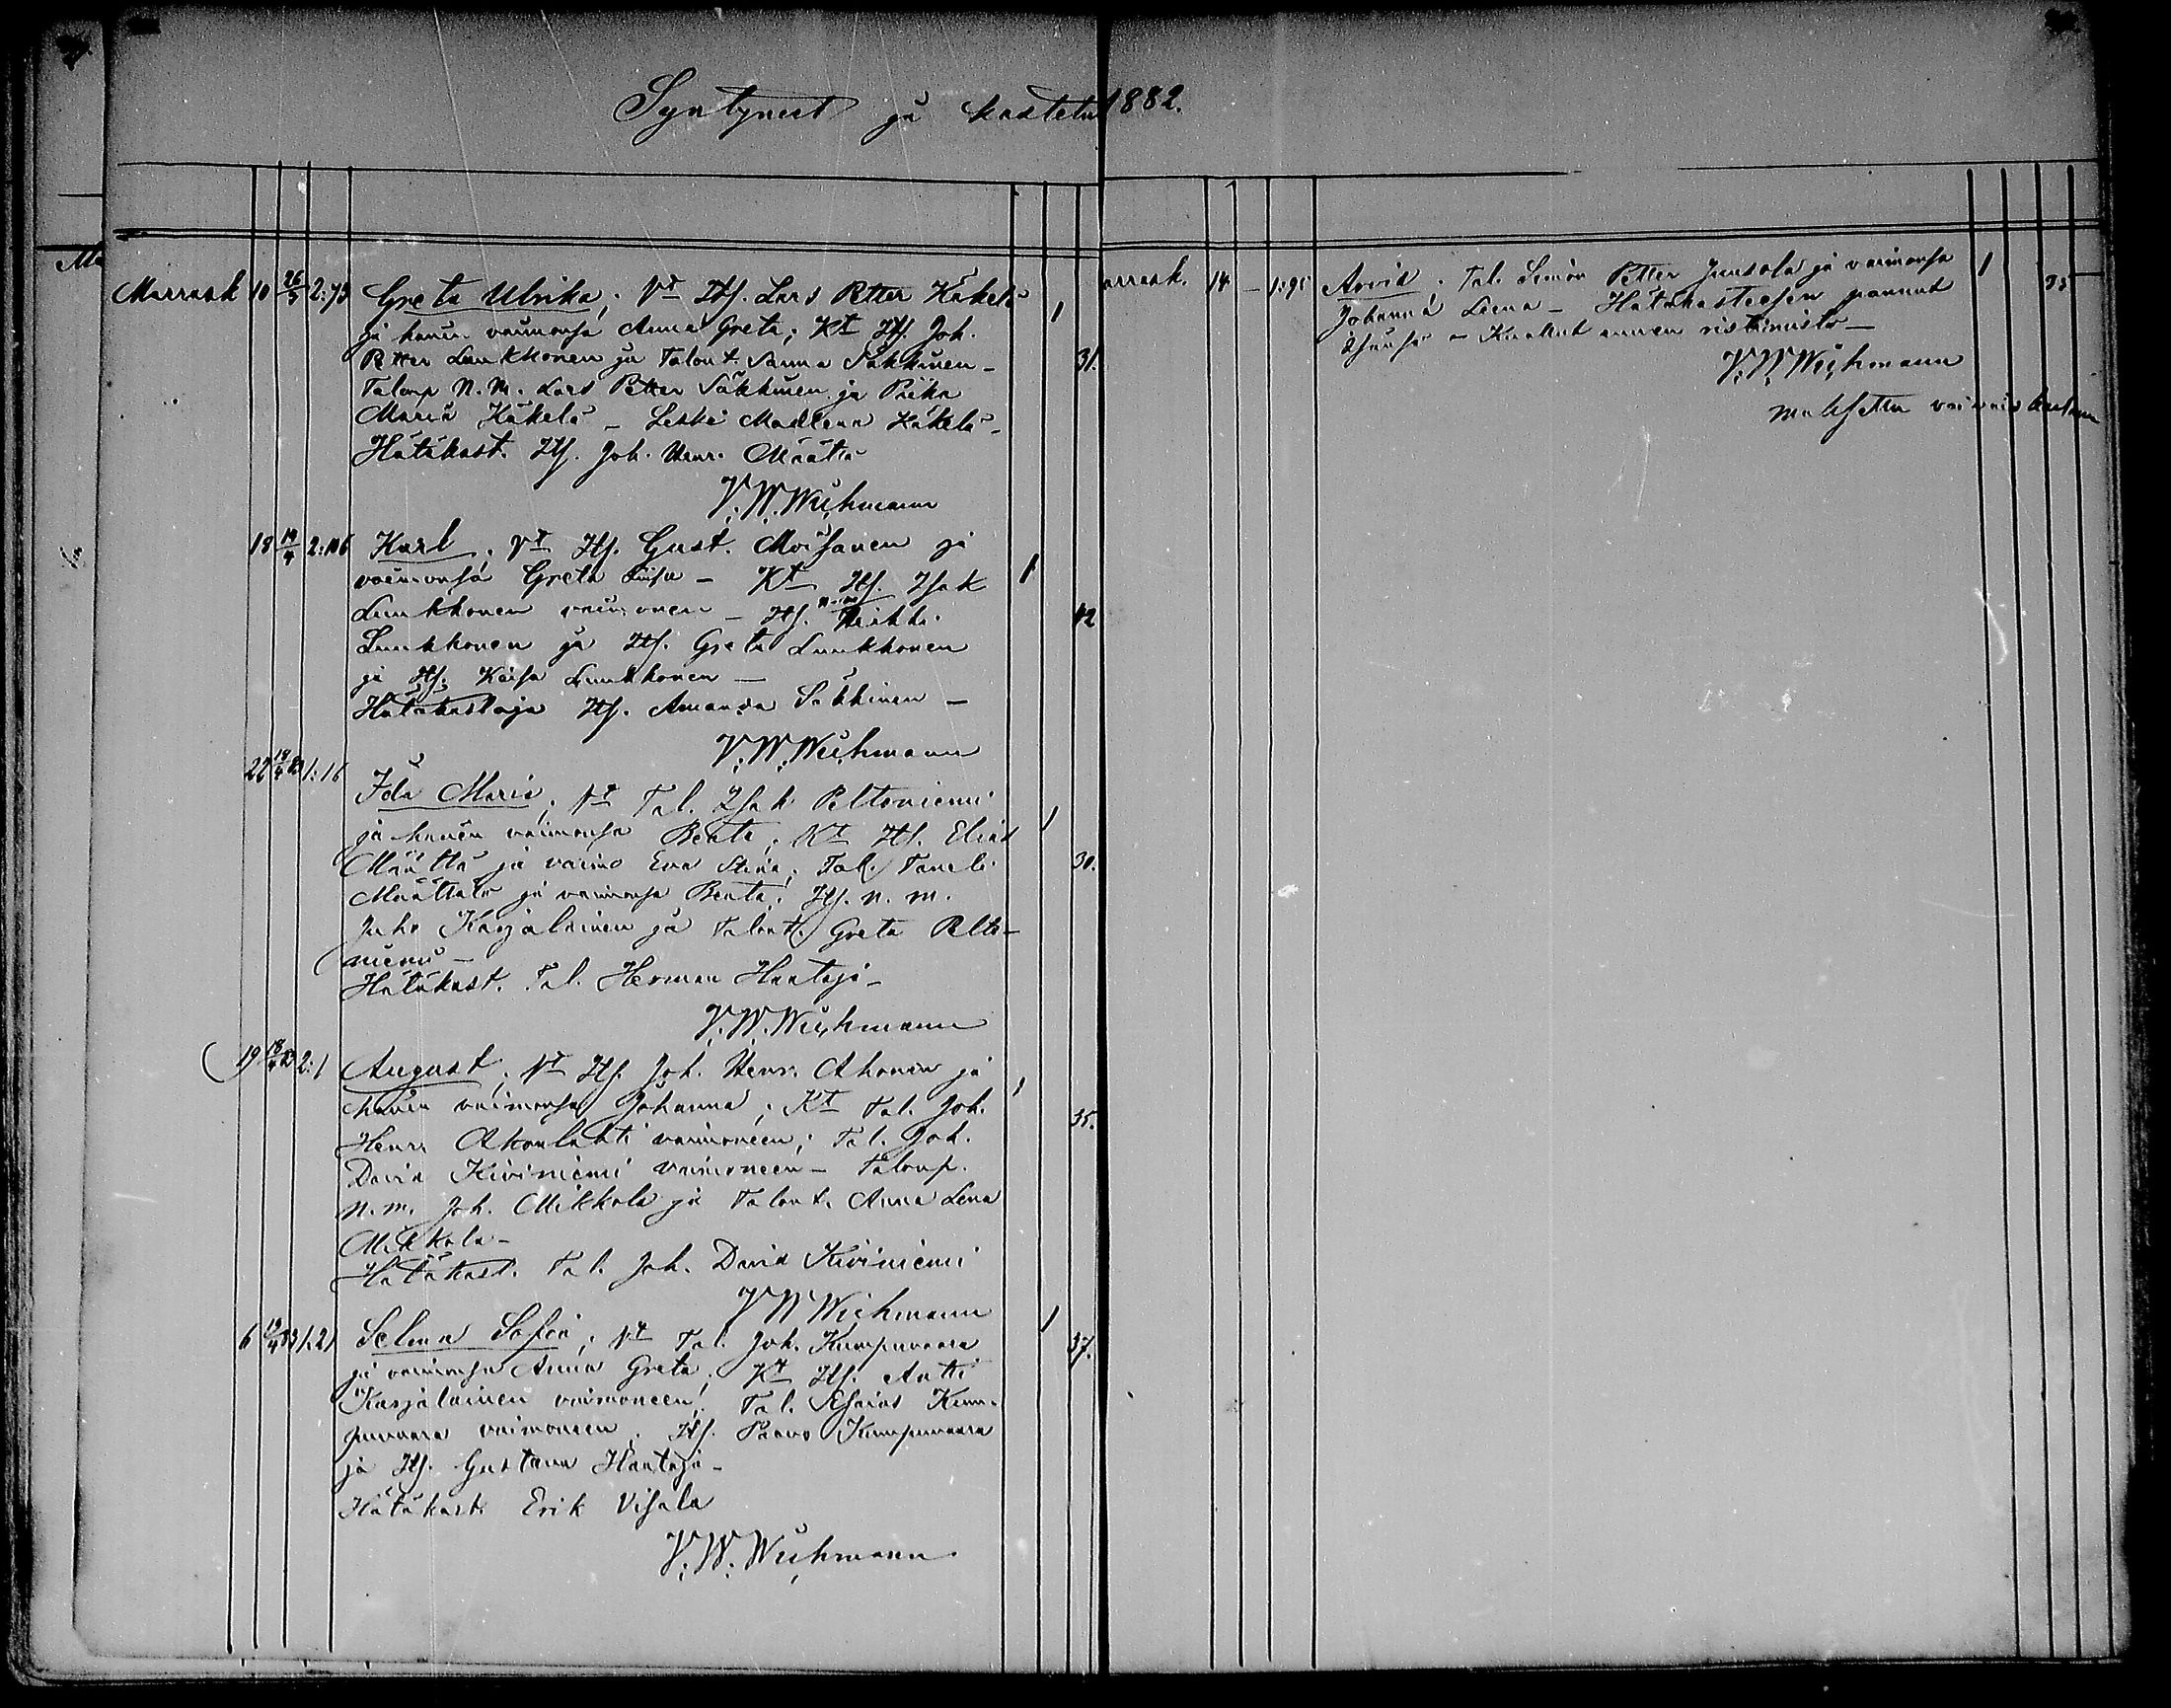 Syntyneet ja kastetut 1882.
Marrask 10 26/3 2:73 Greta Ulrika; Vt Itsl. Lars Petter Käkelä 1
ja hänen vaimonsa Anna Greta; Kt Itsl. Joh.
Petter Luukkonen ja Talont. Sanna Säkkinen – 31.
Talonp N. M. Lars Petter Säkkinen ja Piika
Maria Käkelä – Leski Madlena Käkelä –
Hätäkast. Itsl. Joh. Henr. Määttä
V. W. Wichmann
18 19/4 2:106 Karl; Vt Itsl. Gust. Moisanen ja
vaimonsa Greta Liisa – Kt Itsl. Isak 1
Luukkonen vaimoneen – Itsl. Heikki 42
Luukkonen ja Itsl. Greta Luukkonen
ja Itsl. Kaisa Luukkonen –
Hätäkastaja Itsl. Amanda Säkkinen –
V. W. Wichmann
1:16
Ida Maria; Vt Tal. Isak Peltoniemi
ja hänen vaimonsa Beata; Kt Itsl. Elias 1
Määttä ja vaimo Eva Stina; Tal. Taneli 30.
Määttälä ja vaimonsa Beata; Itsl. n. m.
Juho Karjalainen ja Talont. Greta Pelto-
niemi –
Hätäkast. Tal. Herman Hautaja –
V. W. Wichmann
19 2:1 August; Vt Itsl. Joh. Henr. Ahonen ja 1
hänen vaimonsa Johanna; Kt Tal. Joh. 35.
Henr. Akonlahti vaimoneen; Tal. Joh.
David Kiviniemi vaimoneen – Talonp.
n. m. Joh. Mikkola ja Talont. Anna Lena
Mikkola –
Hätäkast. Tal. Joh. David Kiviniemi
V W Wichmann
6 1:21 Selma Sofia; Vt Tal. Joh. Kumpuvaara 1 37.
ja vaimonsa Anna Greta; Kt Itsl. Antti
Karjalainen vaimoneen; Tal. Esaias Kum-
puvaara vaimoneen; Itsl. Paavo Kumpuvaara
ja Itsl. Gustava Hautaja –
Hätäkast. Erik Visala
V. W. Wichmann
arrask. 14 – 1:95 Arvid; Tal. Simon Petter Juntola ja vaimonsa 1 35
Johanna Leena – Hätäkasteesen pannut
– Kuollut ennen ristimistä –
V. W. Wichmann